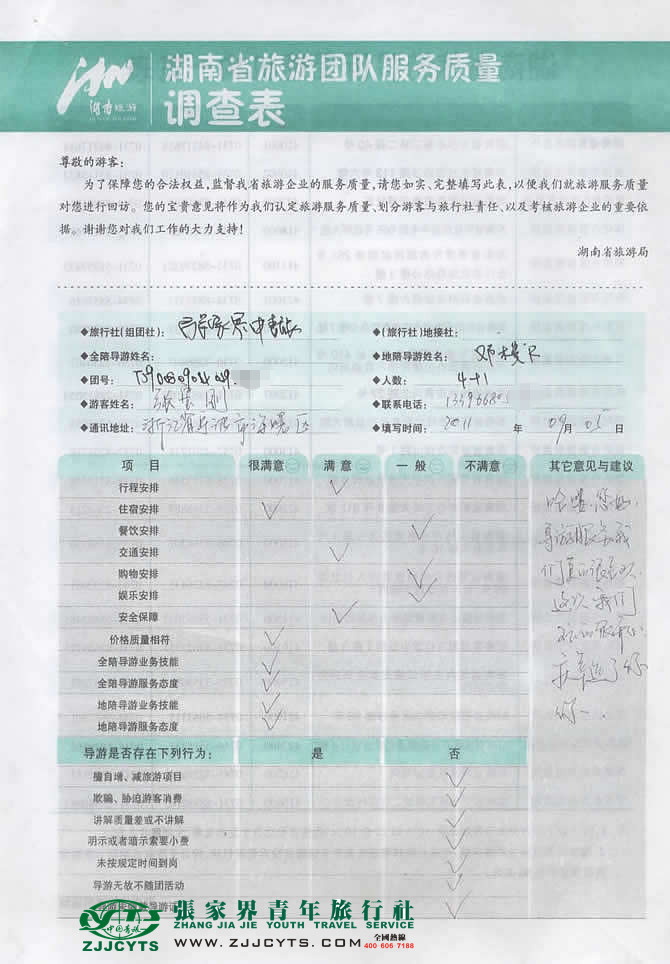 湖南旅游
湖南省旅游团队服务质量
调查表
尊敬的游客:
为了保障您的合法权益,监督我省旅游企业的服务质量,请您如实、完整填写此表,以便我们就旅游服务质量
对您进行回访。您的宝贵意见将作为我们认定旅游服务质量、划分游客与旅行社责任、以及考核旅游企业的重要依
据。谢谢您对我们工作的大力支持!
湖南省旅游局
◆旅行社(组团社): ◆(旅行社)地接社:
◆全陪导游姓名: ◆地陪导游姓名:
◆团号: ◆人数: 4+1
◆游客姓名: ◆联系电话:
◆通讯地址: 浙江省宁波市海曙区 ◆填写时间: 2011 年 09 月 05 日
项 目 很满意 满 意 一 般 不满意 其它意见与建议
行程安排 ✓
住宿安排 ✓
餐饮安排 ✓
交通安排 ✓
购物安排 ✓
娱乐安排 ✓
安全保障 ✓
价格质量相符 ✓
全陪导游业务技能 ✓
全陪导游服务态度 ✓
地陪导游业务技能 ✓
地陪导游服务态度 ✓
导游服务我
们真的很
这次我们
导游是否存在下列行为: 是 否
擅自增、减旅游项目 ✓
欺骗、胁迫游客消费 ✓
讲解质量差或不讲解 ✓
明示或者暗示索要小费 ✓
未按规定时间到岗 ✓
导游无故不随团活动 ✓
✓
中国青旅
ZJJCYTS
張家界青年旅行社
ZHANG JIA JIE YOUTH TRAVEL SERVICE
WWW.ZJJCYTS.COM 全國熱線
400 606 7188